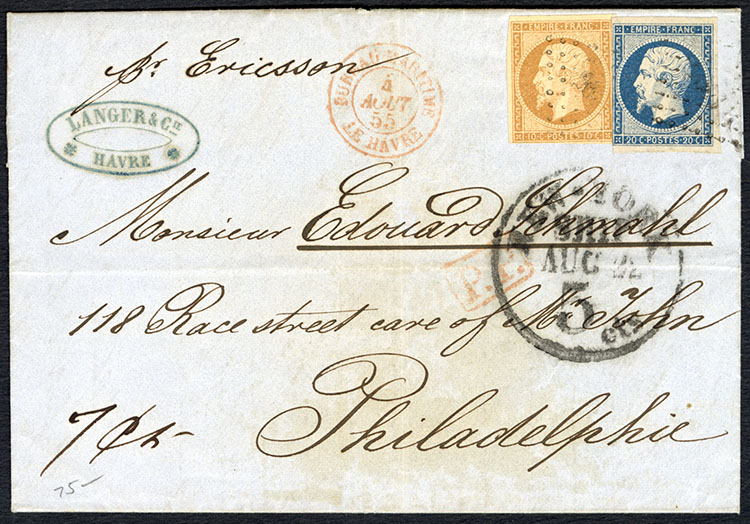 pr. Ericsson
BUREAU MARITIME
4
AOUT
55
LE HAVRE
EMPIRE FRANC.
10 C. POSTES 10 C.
EMPIRE FRANC.
20 C. POSTES 20 C.
LANGER & Cie
HAVRE
NEW-YORK
AUG 22
5
cts
Monsieur Edouard Schmahl
P.P.
118 Race street care of Mr John
Philadelphie
7 cts
75-